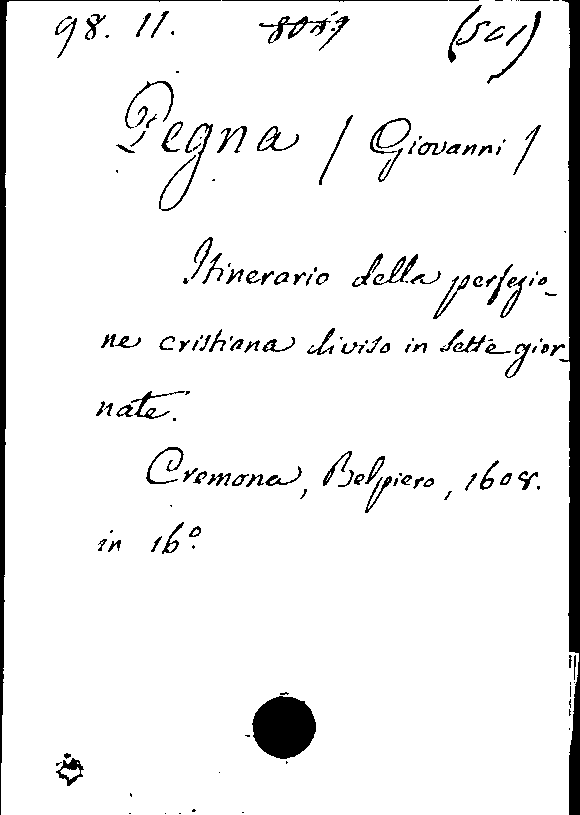 98. 11. (501)
Pegna / Giovanni /
Itinerario della perfezio-
ne cristiana diviso in sette gior-
nate.
Cremona, Belpiero, 1608.
in 16º.